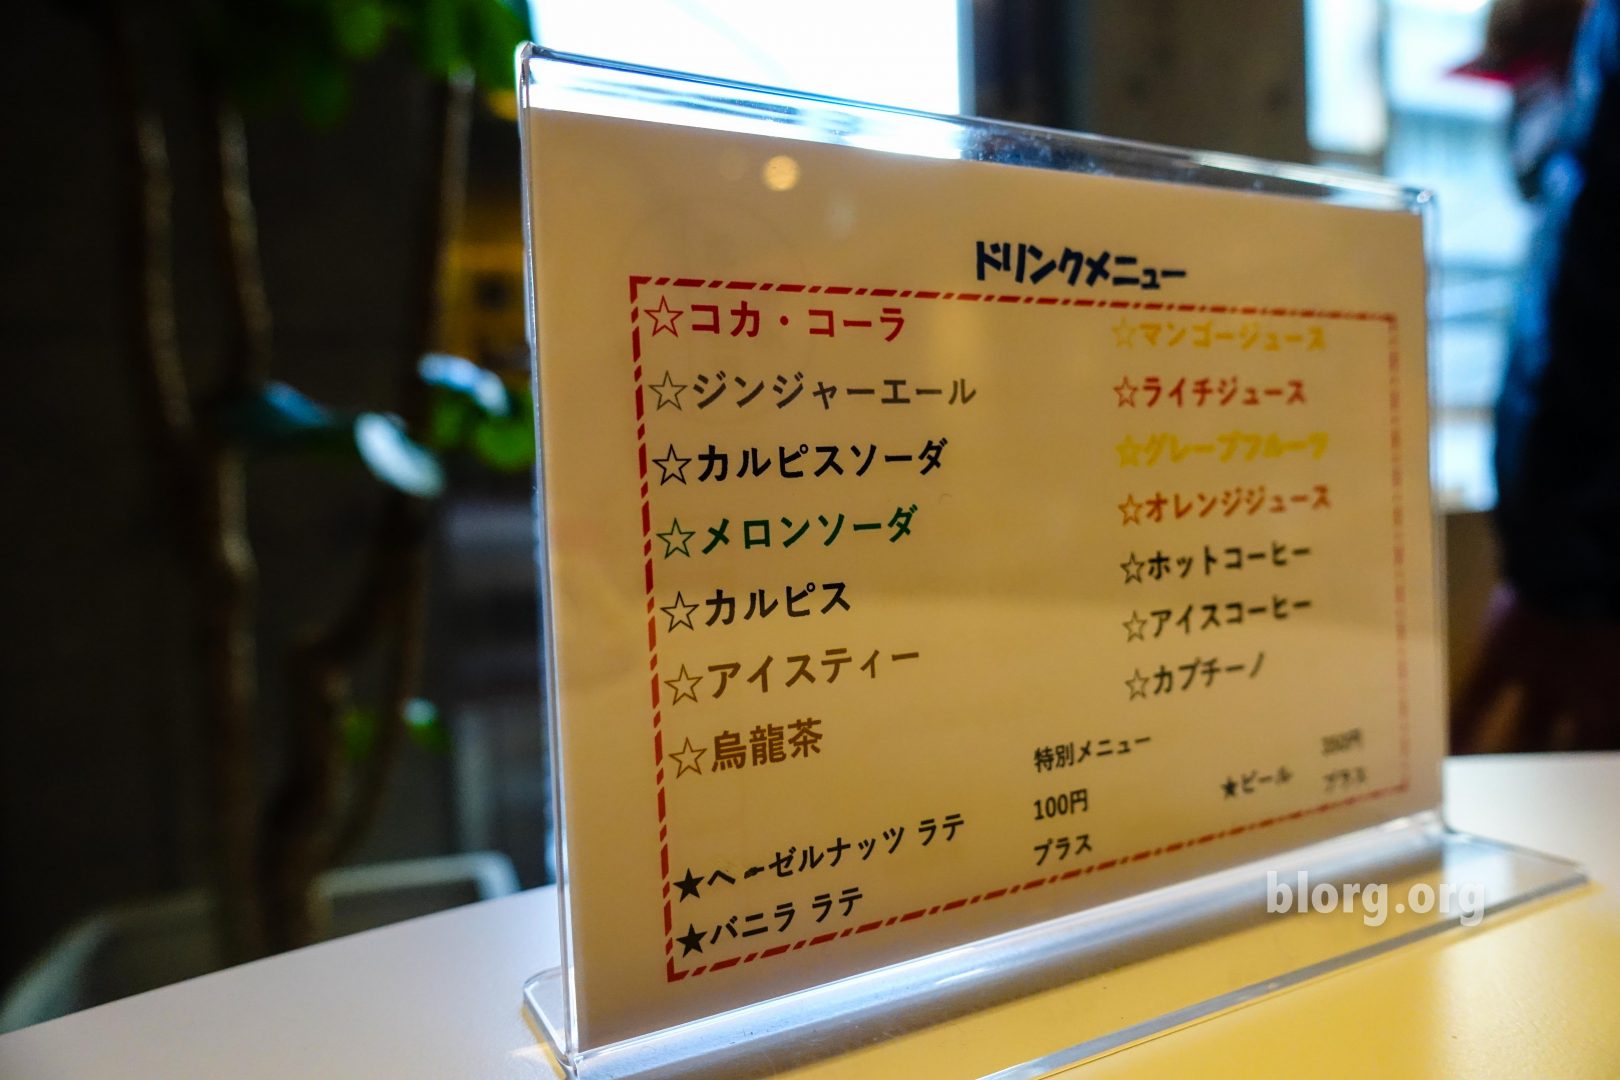 ドリンクメニュー
☆コカ・コーラ
☆ジンジャーエール
☆カルピスソーダ
☆メロンソーダ
☆カルピス
☆アイスティー
☆烏龍茶
☆マンゴージュース
☆ライチジュース
☆グレープフルーツ
☆オレンジジュース
☆ホットコーヒー
☆アイスコーヒー
☆カプチーノ
特別メニュー
★ヘーゼルナッツ ラテ
★バニラ ラテ
100円
プラス
★ビール
350円
プラス
blorg.org